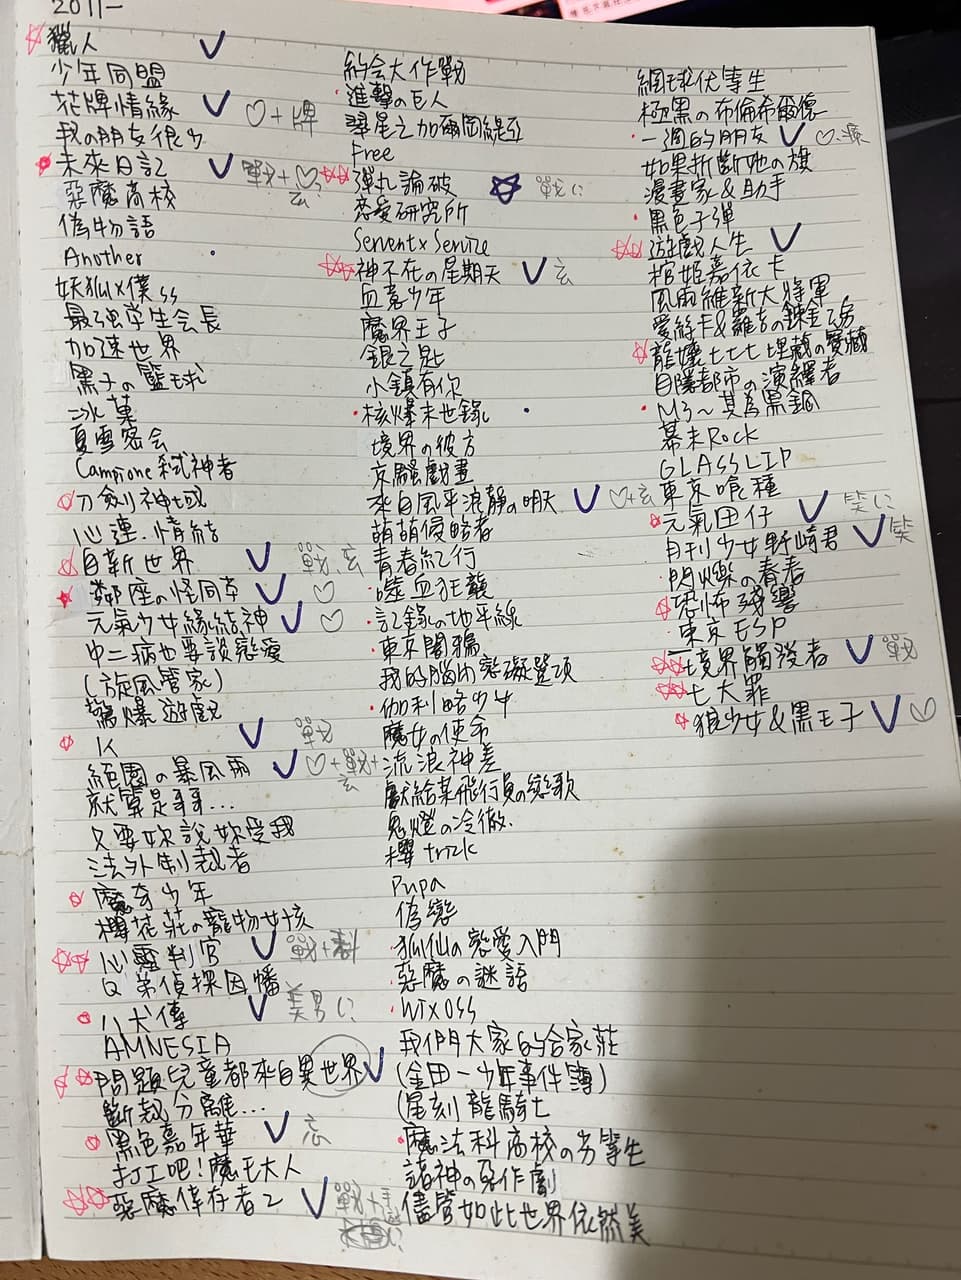 2011-
獵人
少年同盟
花牌情緣 ♡+牌
我の朋友很少
未來日記 戰+♡, 玄
惡魔高校
偽物語
Another
妖狐x僕ss
最強学生会長
加速世界
黑子の籃球
冰菓
夏雪密会
Campione 弒神者
刀劍神域
心連·情結
自新世界 戰、玄
鄰座の怪同学 ♡
元氣少女緣結神 ♡
中二病也要談戀愛
(旋風管家)
驚爆遊戲
K 戰
絕園の暴風雨 ♡+戰+玄
就算是哥哥...
只要妳說妳愛我
法外制裁者
魔奇少年
櫻花莊の寵物女孩
心靈判官 戰+科
兄弟偵探因幡
八犬傳 美男に
AMNESIA
問題兒童都來自異世界
斷裁分離...
黑色嘉年華 忘
打工吧!魔王大人
惡魔倖存者2 戰+
約会大作戰
進擊の巨人
翠星之加爾岡緹亞
Free
弹丸論破 戰に
恋愛研究所
Servent x Service
神不在の星期天 玄
血意少年
魔界王子
銀之匙
小鎮有你
核爆末世錄
境界の彼方
京騷戲畫
來自風平浪靜の明天 ♡+玄
萌萌侵略者
青春紀行
噬血狂襲
記錄の地平線
東京闇鴉
我的腦内戀礙選項
伽利略少女
魔女の使命
流浪神差
獻給某飛行員の戀歌
鬼燈の冷徹.
櫻trick
Pupa
偽戀
狐仙の戀愛入門
惡魔の謎語
WIXOSS
我們大家的合家莊
(金田一少年事件簿)
(星刻龍騎士
魔法科高校の劣等生
諸神の惡作劇
儘管如此世界依然美
網球优等生
極黑の布倫希爾德
一週的朋友 ♡
如果折斷她の旗
漫畫家&助手
黑色子彈
遊戲人生
棺姬嘉依卡
風雨維新大將軍
愛絲卡&羅吉の鍊金工房
龍孃七七七埋藏の寶藏
目隱都市の演繹者
M3~其為黑鋼
幕末Rock
GLASSLIP
東京喰種
元氣囝仔 笑に
月刊少女野崎君 笑
閃爍の春春
恐怖殘響
東京ESP
境界觸發者 戰
七大罪
狼少女&黑王子 ♡